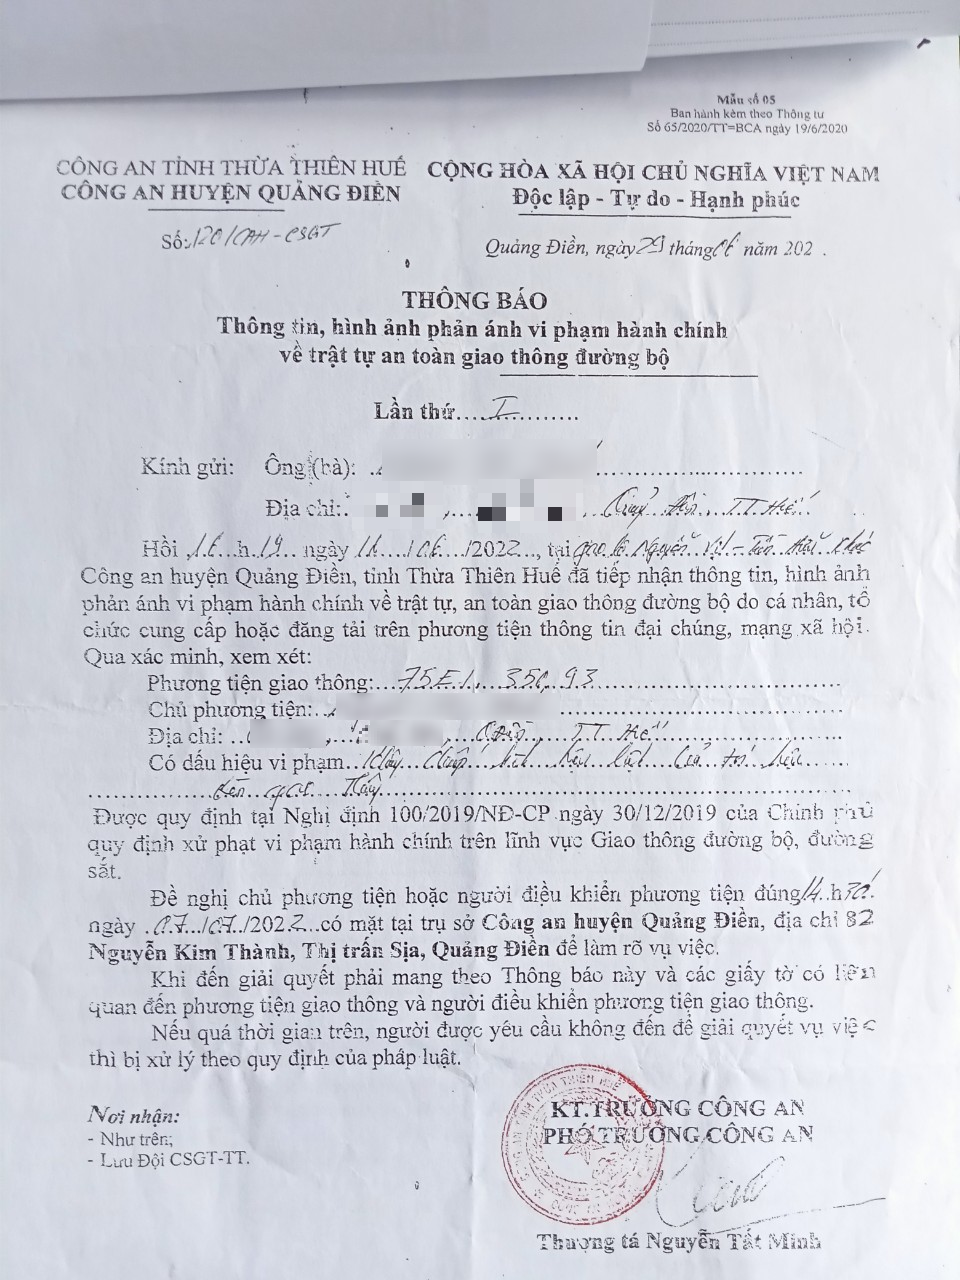 Mẫu số 05
Ban hành kèm theo Thông tư
Số 65/2020/TT=BCA ngày 19/6/2020
CÔNG AN TỈNH THỪA THIÊN HUẾ
CÔNG AN HUYỆN QUẢNG ĐIỀN
CỘNG HÒA XÃ HỘI CHỦ NGHĨA VIỆT NAM
Độc lập - Tự do - Hạnh phúc
Số: 120/CAH-CSGT
Quảng Điền, ngày 29 tháng 06 năm 202 .
THÔNG BÁO
Thông tin, hình ảnh phản ánh vi phạm hành chính
về trật tự an toàn giao thông đường bộ
Lần thứ....I..........
Kính gửi: Ông (bà): ..............................
Địa chỉ: , , Quảng Điền, TT.Huế
Hồi 16 h 19 ngày 11 /06 /2022, tại giao lộ Nguyễn Vịnh - Trần Hữu Khác
Công an huyện Quảng Điền, tỉnh Thừa Thiên Huế đã tiếp nhận thông tin, hình ảnh
phản ánh vi phạm hành chính về trật tự, an toàn giao thông đường bộ do cá nhân, tổ
chức cung cấp hoặc đăng tải trên phương tiện thông tin đại chúng, mạng xã hội.
Qua xác minh, xem xét:
Phương tiện giao thông: 75E1. 350.93
Chủ phương tiện:
Địa chỉ: .. , Điền, TT.Huế
Có dấu hiệu vi phạm Không chấp hành hiệu lệnh của tín hiệu
đèn giao thông
Được quy định tại Nghị định 100/2019/NĐ-CP ngày 30/12/2019 của Chính phủ
quy định xử phạt vi phạm hành chính trên lĩnh vực Giao thông đường bộ, đường
sắt.
Đề nghị chủ phương tiện hoặc người điều khiển phương tiện đúng 14 h 30'
ngày 07 /07 /2022 có mặt tại trụ sở Công an huyện Quảng Điền, địa chỉ 82
Nguyễn Kim Thành, Thị trấn Sịa, Quảng Điền để làm rõ vụ việc.
Khi đến giải quyết phải mang theo Thông báo này và các giấy tờ có liên
quan đến phương tiện giao thông và người điều khiển phương tiện giao thông.
Nếu quá thời gian trên, người được yêu cầu không đến để giải quyết vụ việc
thì bị xử lý theo quy định của pháp luật.
Nơi nhận:
- Như trên;
- Lưu Đội CSGT-TT.
KT.TRƯỞNG CÔNG AN
PHÓ TRƯỞNG CÔNG AN
Thượng tá Nguyễn Tất Minh